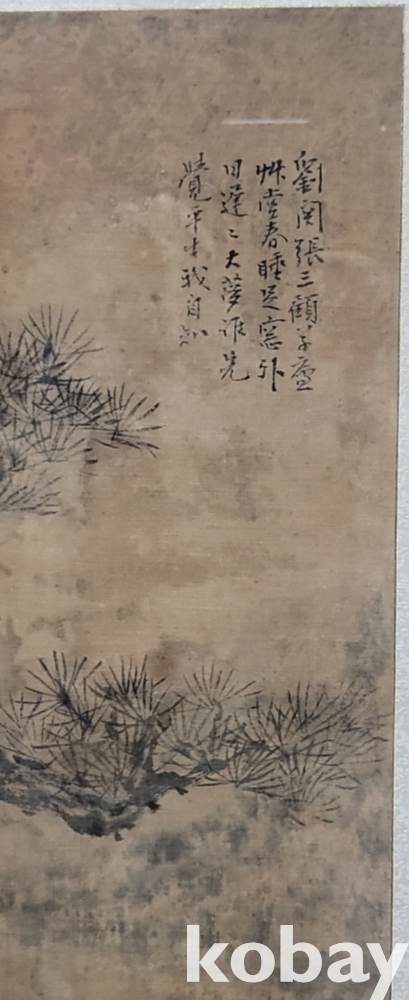 劉関張三顧草廬
艸堂春睡足窓外
日遲〻大夢誰先
覺平生我自知
kobay